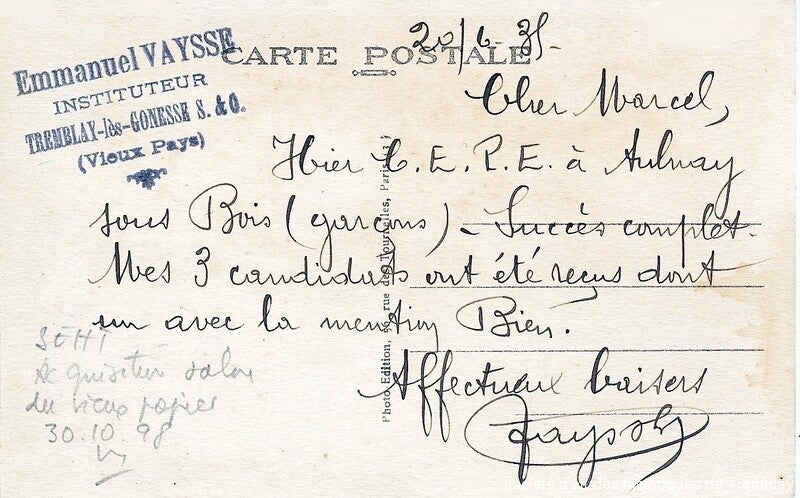 CARTE POSTALE
Emmanuel VAYSSE
INSTITUTEUR
TREMBLAY-lès-GONESSE S. & O.
(Vieux Pays)
20/6-35-
Cher Marcel,
Hier C.E.P.E. à Aulnay
sous Bois (garçons) - Succès complet.
Mes 3 candidats ont été reçus dont
un avec la mention Bien.
Affectueux baisers
Vaysse
Photo Edition, rue des Tournelles, Paris
SEHT
Acquisition salon
du vieux papier
30.10.98
d'études historiques de Tremblay